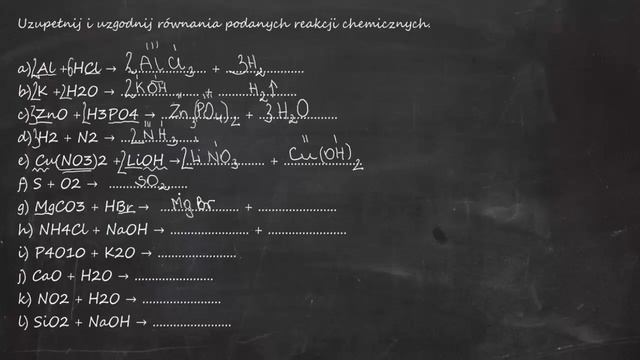 Uzupełnij i uzgodnij równania podanych reakcji chemicznych.
a) 2Al + 6HCl → 2AlCl3 + 3H2
b) 2K + 2H2O → 2KOH + H2↑
c) 3ZnO + 2H3PO4 → Zn3(PO4)2 + 3H2O
d) 3H2 + N2 → 2NH3
e) Cu(NO3)2 + 2LiOH → 2LiNO3 + Cu(OH)2
f) S + O2 → SO2
g) MgCO3 + HBr → MgBr + ........................
h) NH4Cl + NaOH → ........................ + ........................
i) P4O10 + K2O → ........................
j) CaO + H2O → ........................
k) NO2 + H2O → ........................
l) SiO2 + NaOH → ........................